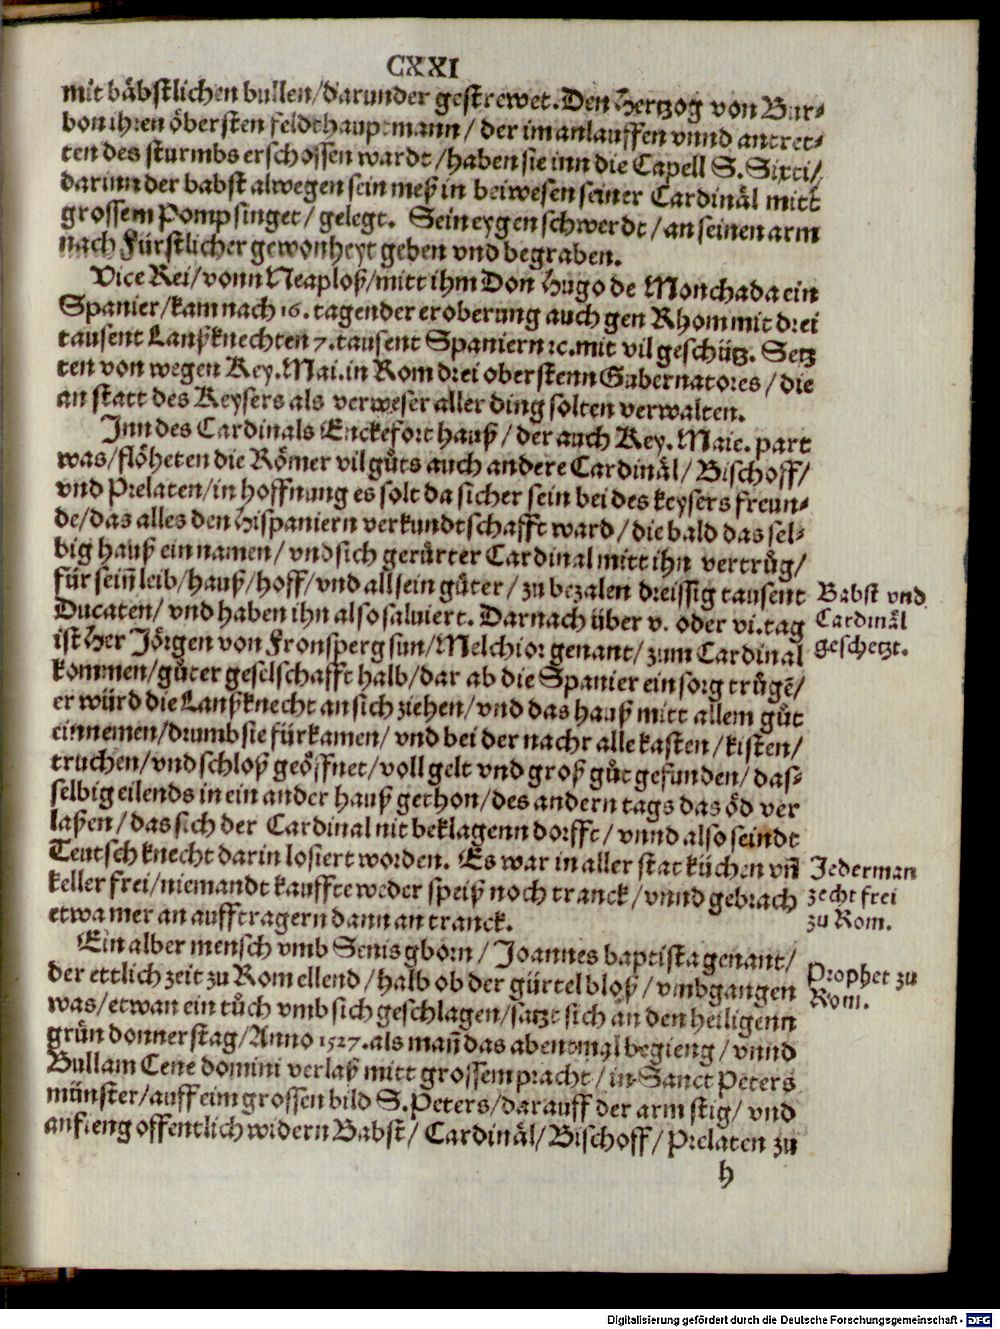 CXXI
mit bäbstlichen bullen/darunder gestrewet. Den Hertzog von Bur⸗
bon ihren öbersten feldthauptmann/ der im anlauffen vnnd antret⸗
ten des sturmbs erschossen wardt/haben sie inn die Capell S. Sixti/
darinn der babst alwegen sein meß in beiwesen seiner Cardinäl mitt
grossem Pomp singet/ gelegt. Sein eygen schwerdt/ an seinen arm
nach Fürstlicher gewonheyt geben vnd begraben.
Vice Rei/ vonn Neaploß/mitt ihm Don Hugo de Monchada ein
Spanier/kam nach 16. tagen der eroberung auch gen Rhom mit drei
tausent Lantzknechten 7. tausent Spaniern ꝛc. mit vil geschütz. Setz
ten von wegen Key. Mai. in Rom drei oberstenn Gubernatores/ die
an statt des Keysers als verweser aller ding solten verwalten.
Inn des Cardinals Enckefort hauß/ der auch Key. Maie. part
was/flöheten die Römer vil gůts auch andere Cardinäl/ Bischoff/
vnd Prelaten/in hoffnung es solt da sicher sein bei des keysers freun⸗
de/das alles den Hispaniern verkundtschafft ward/ die bald das sel⸗
big hauß ein namen/ vnd sich gerůrter Cardinal mitt ihn vertrůg/
für sein̄ leib/hauß/hoff/vnd all sein gůter/ zu bezalen dreissig tausent
Ducaten/ vnd haben ihn also saluiert. Darnach über v. oder vi. tag
ist Her Jörgen von Fronsperg sun/Melchior genant/ zum Cardinal
kommen/gůter geselschafft halb/dar ab die Spanier ein sorg trůgē/
er würd die Lantzknecht an sich ziehen/vnd das hauß mitt allem gůt
einnemen/drumb sie fürkamen/ vnd bei der nachr alle kasten/kisten/
truchen/vnd schloß geöffnet/voll gelt vnd groß gůt gefunden/ das⸗
selbig eilends in ein ander hauß gethon/des andern tags das öd ver
laßen/ das sich der Cardinal nit beklagenn dorfft/ vnnd also seindt
Teutsch knecht darin losiert worden. Es war in aller stat küchen vn̄
keller frei/niemandt kauffte weder speiß noch tranck/vnnd gebrach
etwa mer an aufftragern dann an tranck.
Ein alber mensch vmb Senis gborn/ Joannes baptista genant/
der ettlich zeit zu Rom ellend/halb ob der gürtel bloß/ vmbgangen
was/etwan ein tůch vmb sich geschlagen/satzt sich an den heiligenn
grün donnerstag/Anno 1527. als man̄ das abentmal begieng/vnnd
Bullam Cene domini verlaß mitt grossem pracht/in Sanct Peters
münster/auff eim grossen bild S. Peters/darauff der arm stig/ vnd
anfieng offentlich widern Babst/ Cardinäl/Bischoff/Prelaten zů
h
Babst vnd
Cardinäl
geschetzt.
Jederman
zecht frei
zu Rom.
Prophet zu
Rom.
Digitalisierung gefördert durch die Deutsche Forschungsgemeinschaft - DFG